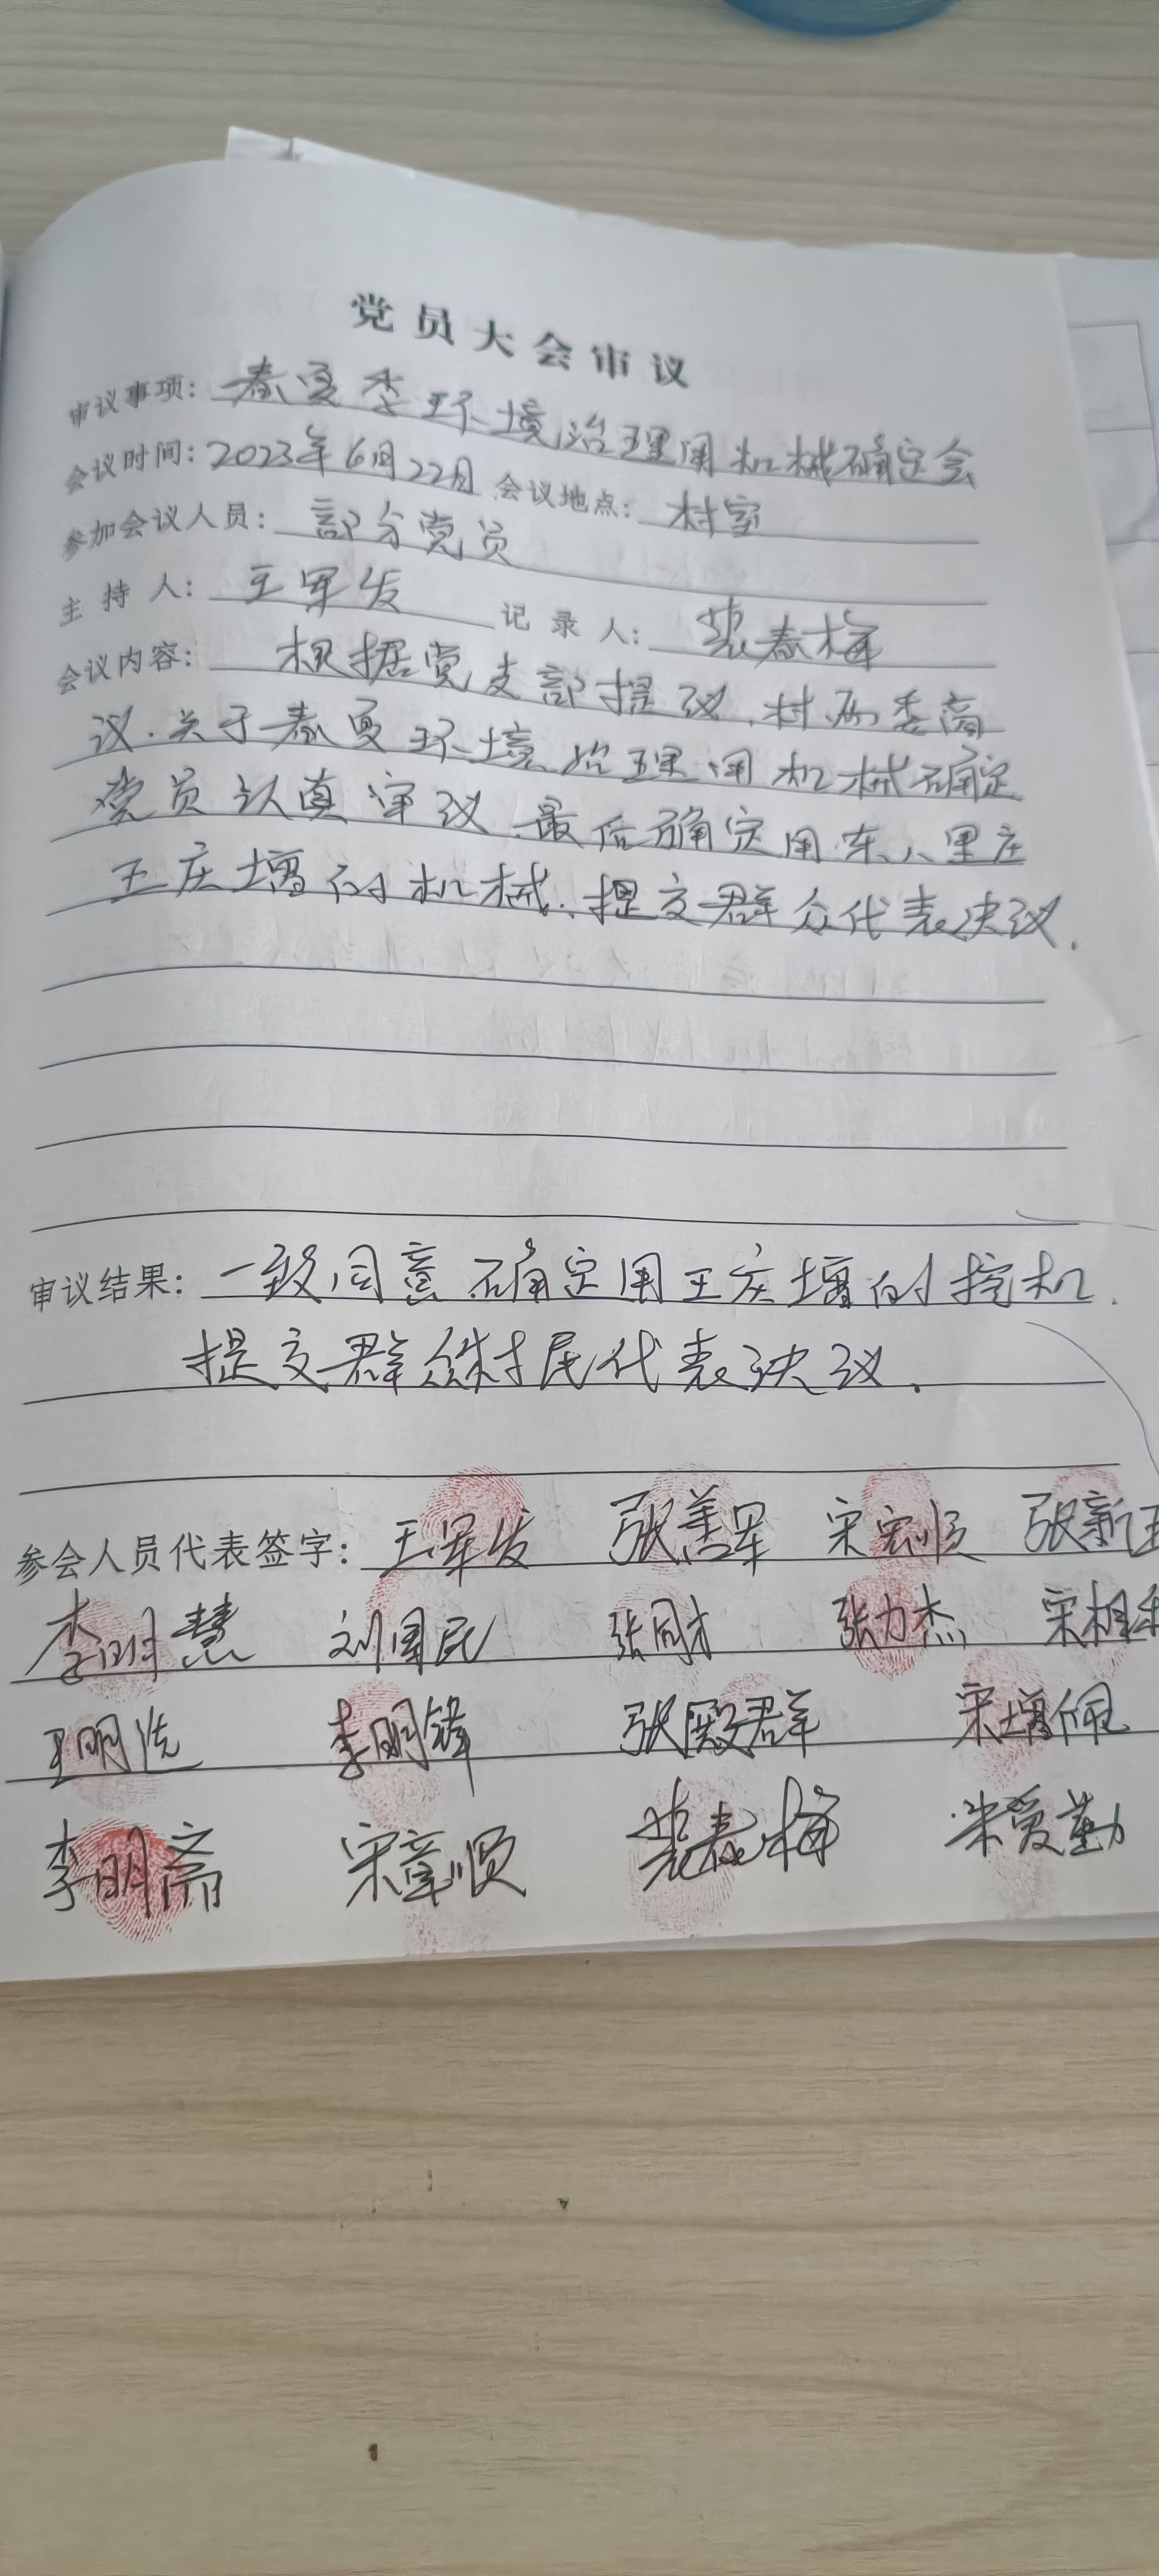 党员大会审议
审议事项：春夏季环境治理用机械确定会
会议时间：2023年6月22日 会议地点：村室
参加会议人员：部分党员
主持人：王军发 记录人：裴春梅
会议内容：根据党支部提议，村两委商
议．关于春夏环境治理用机械确定
党员认真审议．最后确定用东八里庄
王庆增的机械．提交群众代表决议．
审议结果：一致同意确定用王庆增的挖机．
提交群众村民代表决议．
参会人员代表签字：王军发 张善军 宋宏顺 张新
李明慧 刘国民 张同才 张力杰 宋相
王明 李明锋 张殿群 宋增佩
李明斋 宋章顺 裴春梅 宋爱勤